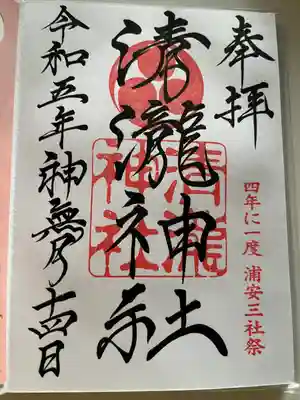 奉拝
四年に一度 浦安三社祭
清瀧神社
清瀧
神社
令和五年神無月十四日